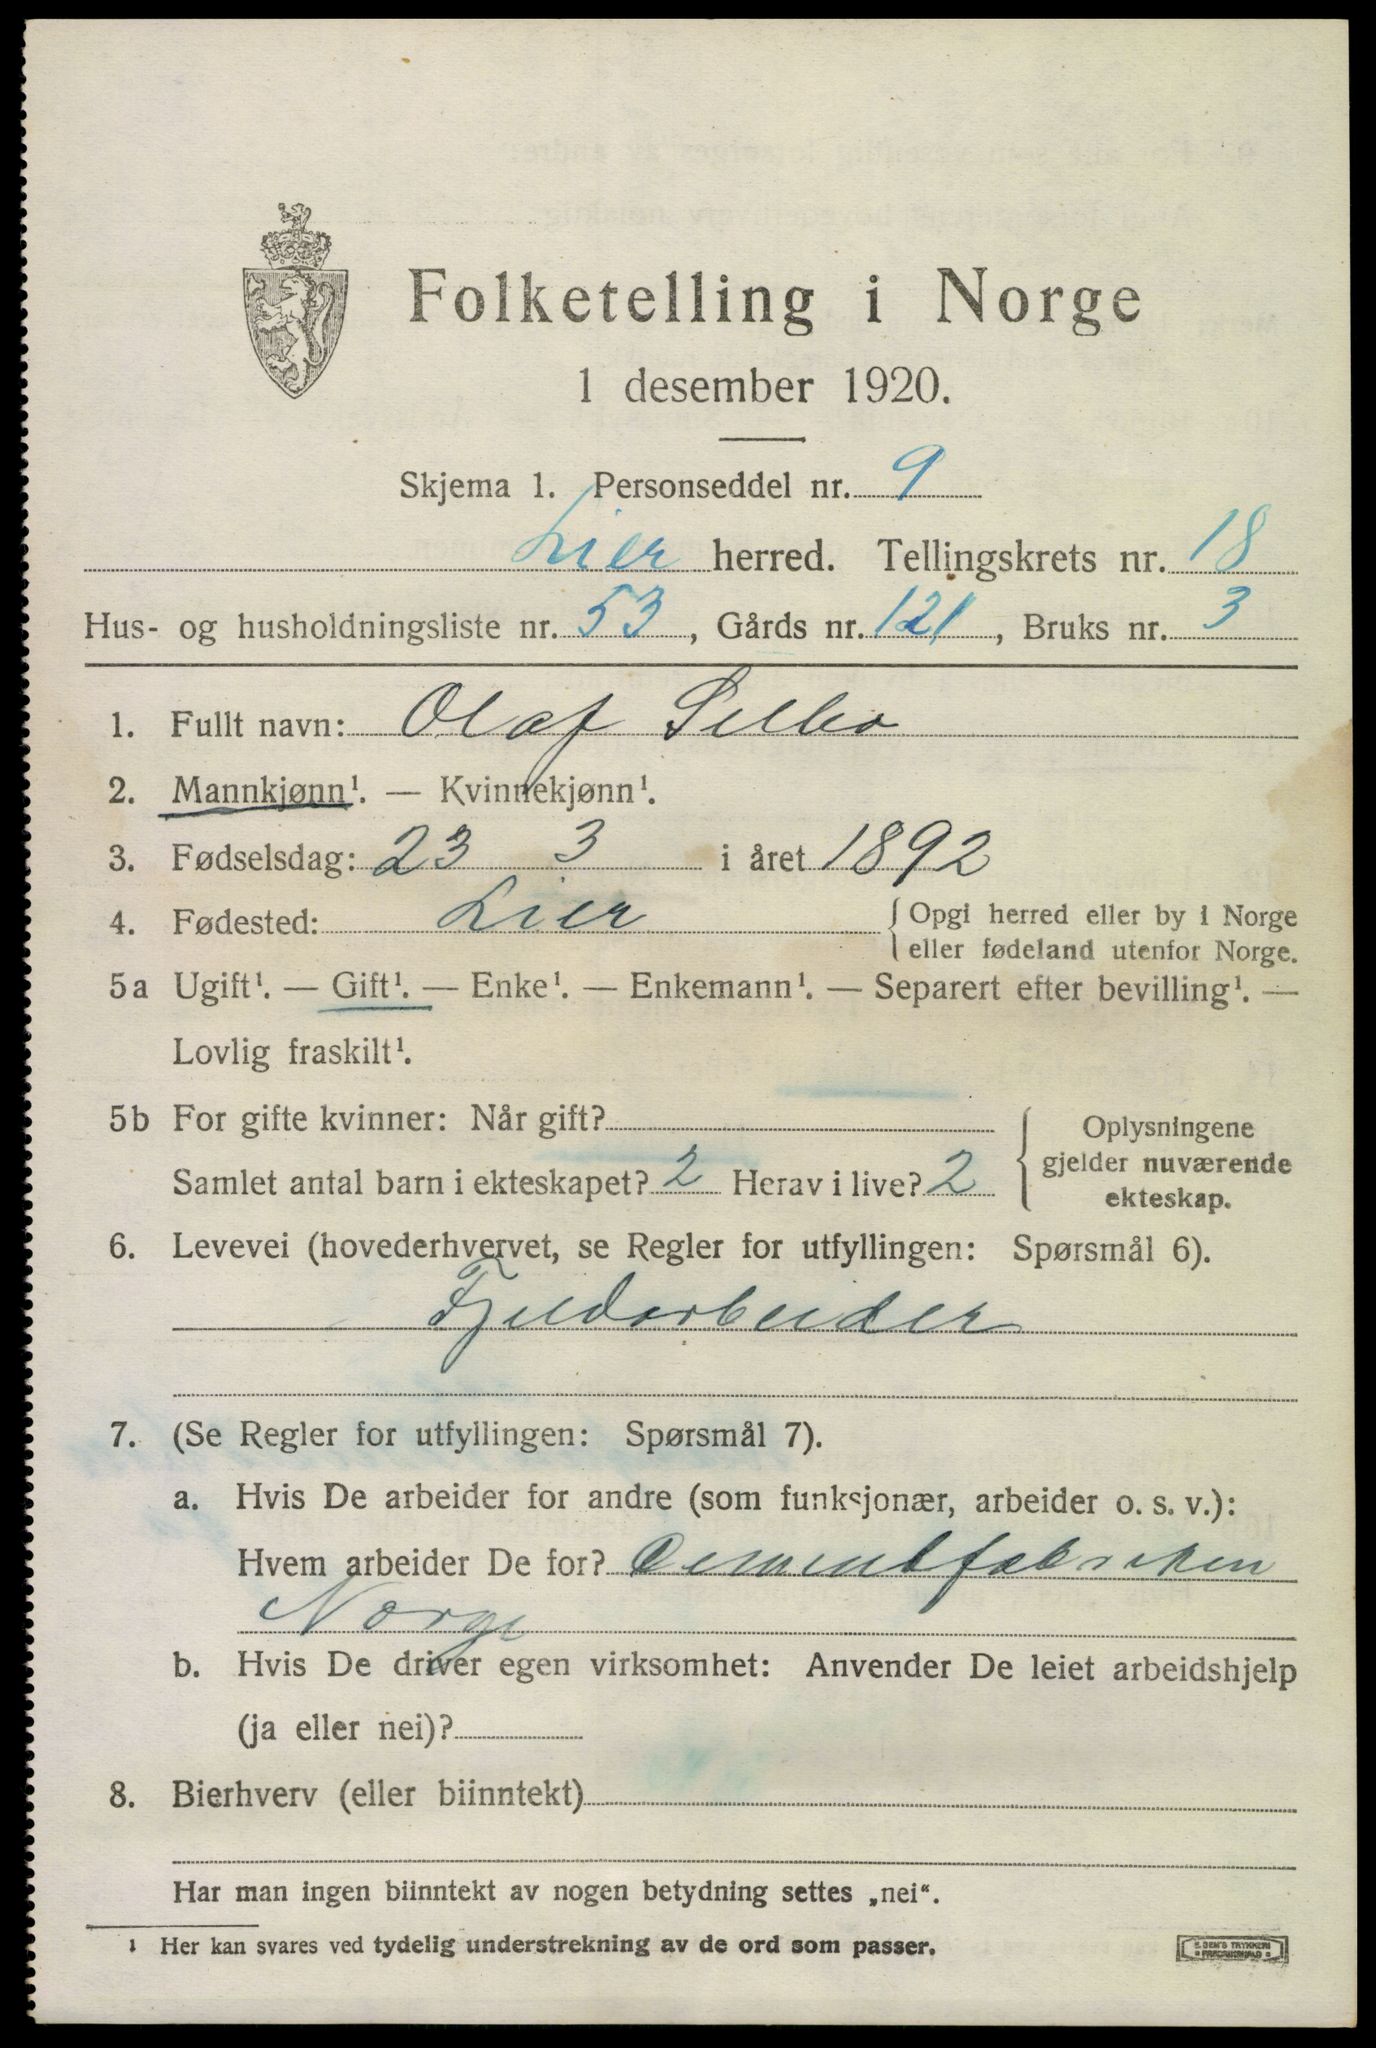 Folketelling i Norge
1 desember 1920.
Skjema 1. Personseddel nr. 9
Lier herred. Tellingskrets nr. 18
Hus- og husholdningsliste nr. 53, Gårds nr. 121, Bruks nr. 3
1. Fullt navn: Olaf Selbo
2. Mannkjønn¹. — Kvinnekjønn¹.
3. Fødselsdag: 23 3 i året 1892
4. Fødested: Lier { Opgi herred eller by i Norge
eller fødeland utenfor Norge.
5a Ugift¹. — Gift¹. — Enke¹. — Enkemann¹. — Separert efter bevilling¹. —
Lovlig fraskilt¹.
5b For gifte kvinner: Når gift?
Samlet antal barn i ekteskapet? 2 Herav i live? 2
{ Oplysningene
gjelder nuværende
ekteskap.
6. Levevei (hovederhvervet, se Regler for utfyllingen: Spørsmål 6).
Fjeldarbeider
7. (Se Regler for utfyllingen: Spørsmål 7).
a. Hvis De arbeider for andre (som funksjonær, arbeider o. s. v.):
Hvem arbeider De for? Cementfabriken
Norge
b. Hvis De driver egen virksomhet: Anvender De leiet arbeidshjelp
(ja eller nei)?
8. Bierhverv (eller biinntekt)
Har man ingen biinntekt av nogen betydning settes „nei“.
¹ Her kan svares ved tydelig understrekning av de ord som passer.
E. SEM'S TRYKKERI
FREDRIKSHALD